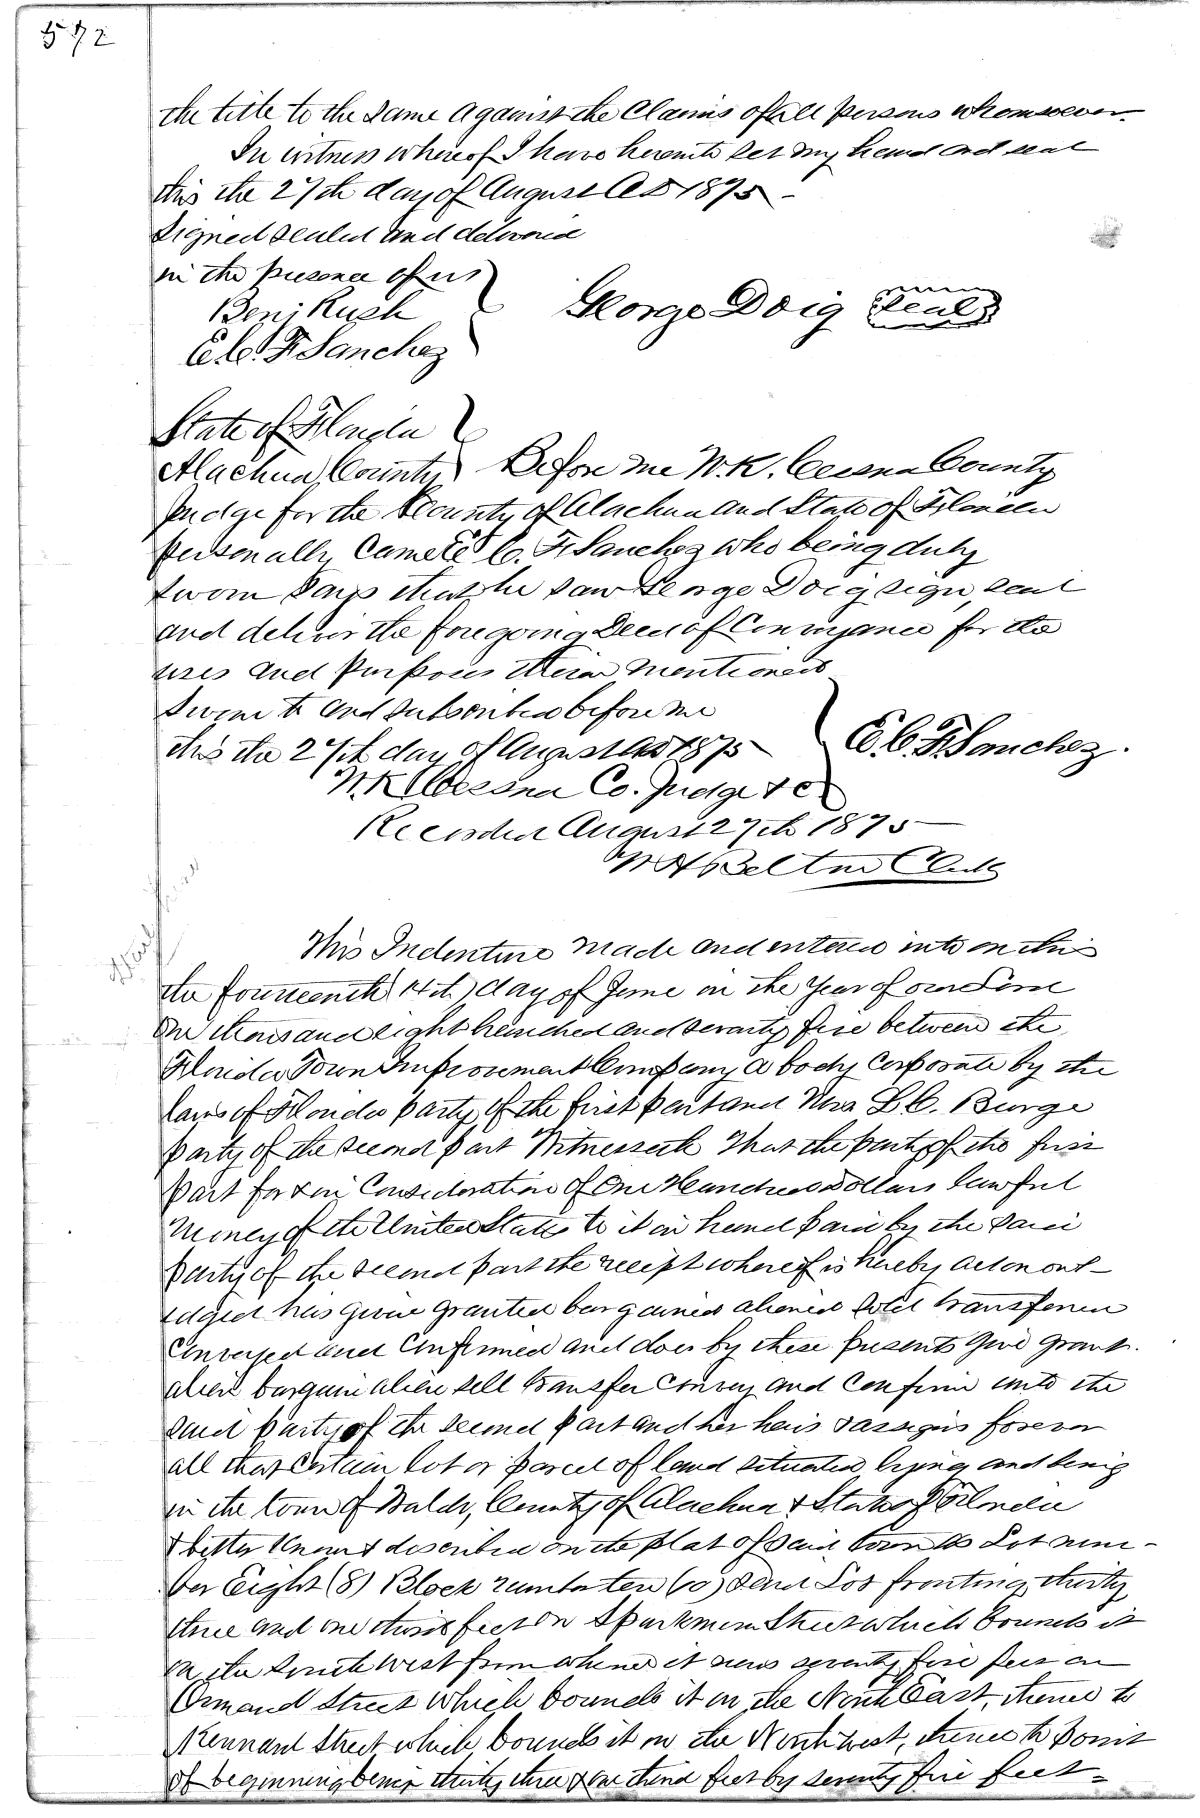 572
the title to the same against the Claims of all persons whomsoever.
In witness whereof I have hereunto set my hand and seal
this the 27th day of August AD 1875 -
Signed sealed and delivered
in the presence of us
Benj Rush
E.C. F. Sanchez
George Doig Seal
State of Florida
Alachua County Before me W.K. Cessna County
Judge for the County of Alachua and State of Florida
personally came E. C. F. Sanchez who being duly
sworn says that he saw George Doig sign, seal
and deliver the foregoing Deed of Conveyance for the
uses and purposes therein mentioned
Sworn to and subscribed before me
this the 27th day of August AD 1875
E. C. F. Sanchez.
W.K. Cessna Co. Judge & c
Recorded August 27th 1875
W H Belton Clerk
This Indenture made and entered into on this
the fourteenth (14th) day of June in the Year of our Lord
One thousand eight hundred and seventy five between the
Florida Town Improvement Company a body corporate by the
laws of Florida party of the first part and Mrs L.C. Burge
party of the second part Witnesseth That the party of the first
part for & in Consideration of One Hundred Dollars lawful
money of the United States to it in hand paid by the said
party of the second part the receipt whereof is hereby acknowl-
edged has given granted bargained aliened sold transferred
Conveyed and Confirmed and does by these presents give grant.
alien bargain alien sell transfer convey and confirm unto the
said party of the second part and her heirs & assigns forever
all that certain lot or parcel of land situated lying and being
in the town of Waldo, County of Alachua & State of Florida
& better known & described on the plat of said town as Lot num-
ber Eight (8) Block number ten (10) said Lot fronting thirty
three and one third feet on Sparkman Street which bounds it
on the South West from whence it runs seventy five feet on
Ormand Street which bounds it on the North East, thence to
Kennard Street which bounds it on the North west, thence to point
of beginning being thirty three & one third feet by seventy five feet -